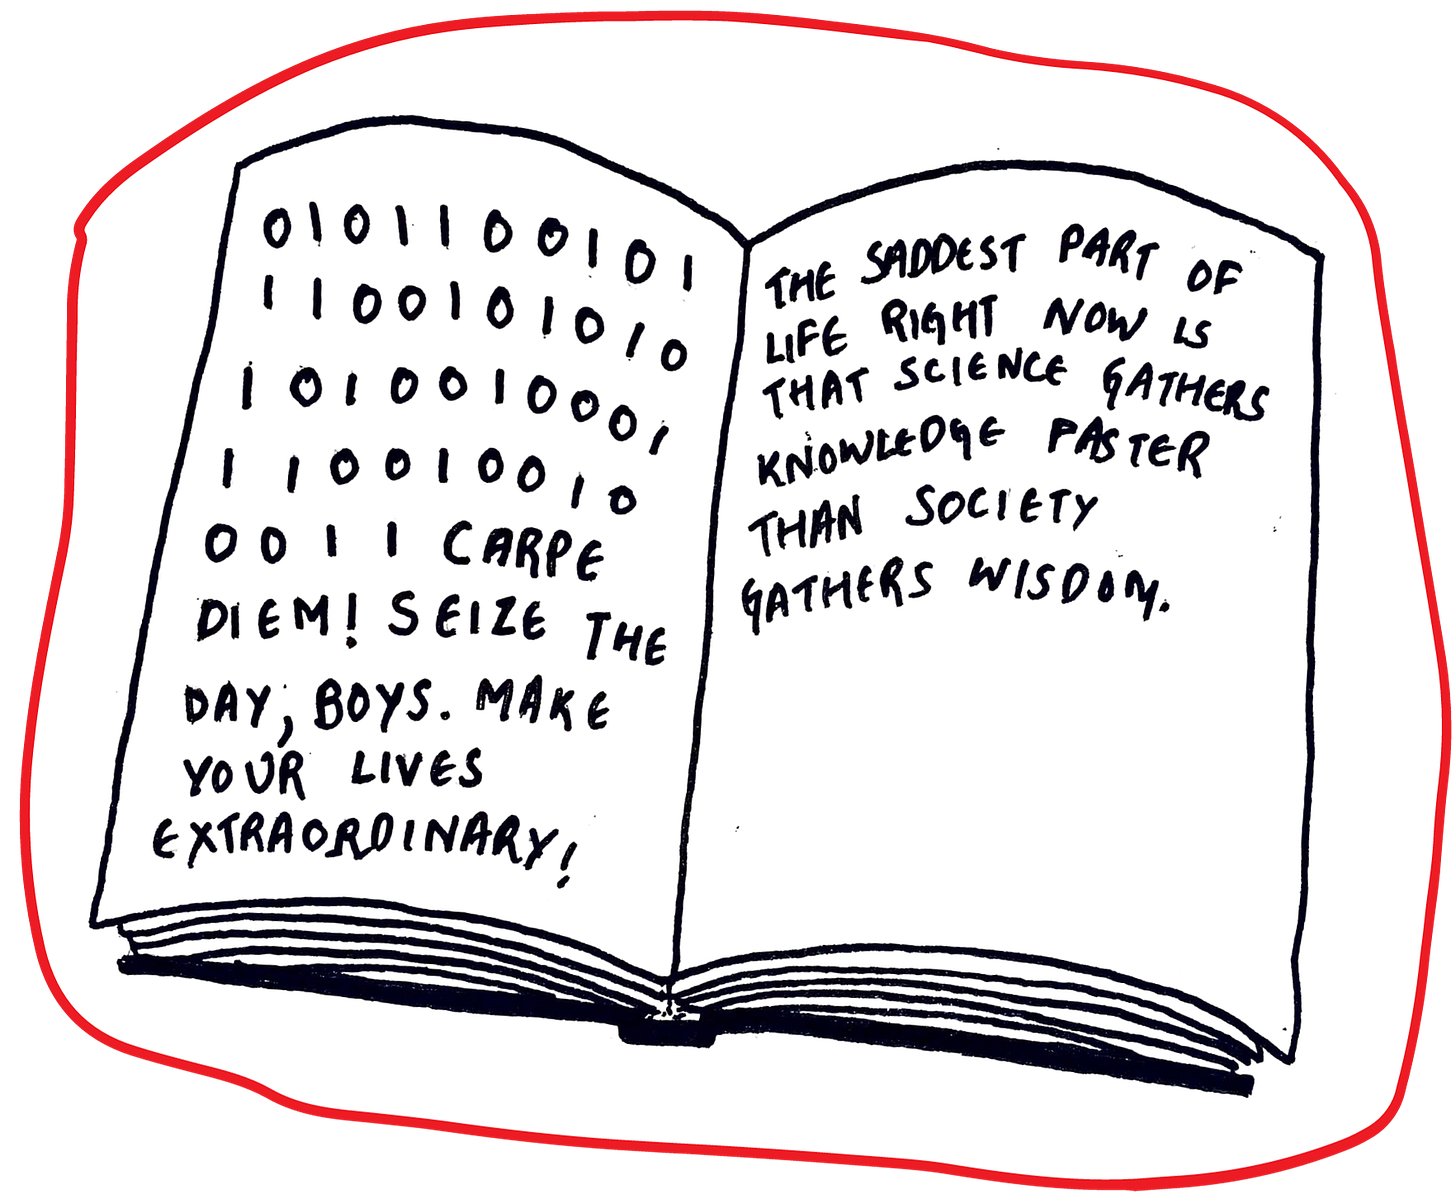 0101100101
1100101010
1010010001
110010010
0011 CARPE
DIEM! SEIZE THE
DAY, BOYS. MAKE
YOUR LIVES
EXTRAORDINARY!
THE SADDEST PART OF
LIFE RIGHT NOW IS
THAT SCIENCE GATHERS
KNOWLEDGE FASTER
THAN SOCIETY
GATHERS WISDOM.